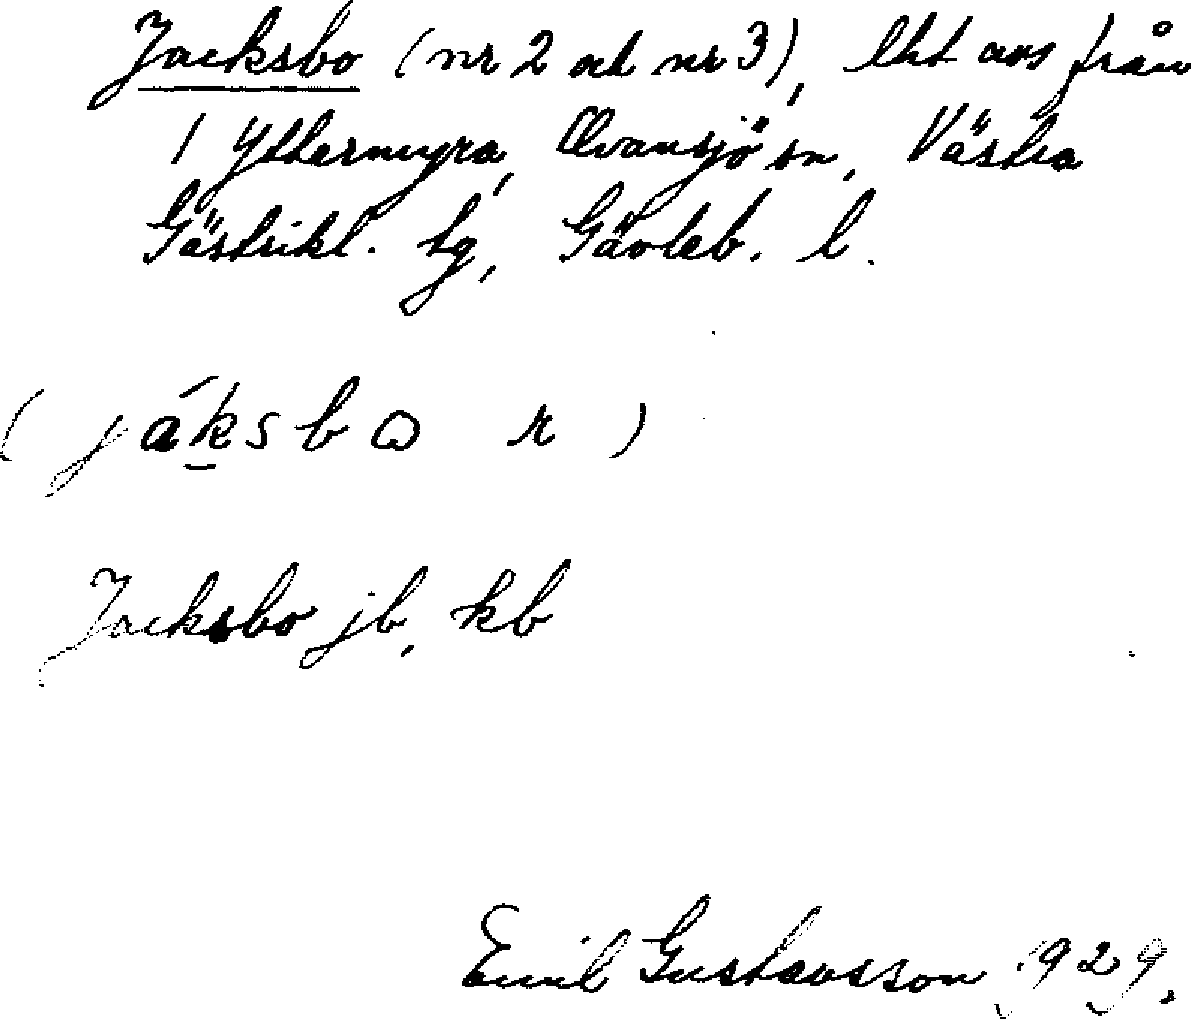 Jacksbo (nr 2 och nr 3), lht avs från
1 Yttermyra, Ovansjö sn, Västra
Gästrikl. tg, Gävleb. l.
( jáksbɷ r )
Jacksbo jb, kb
Emil Gustavsson 1929.